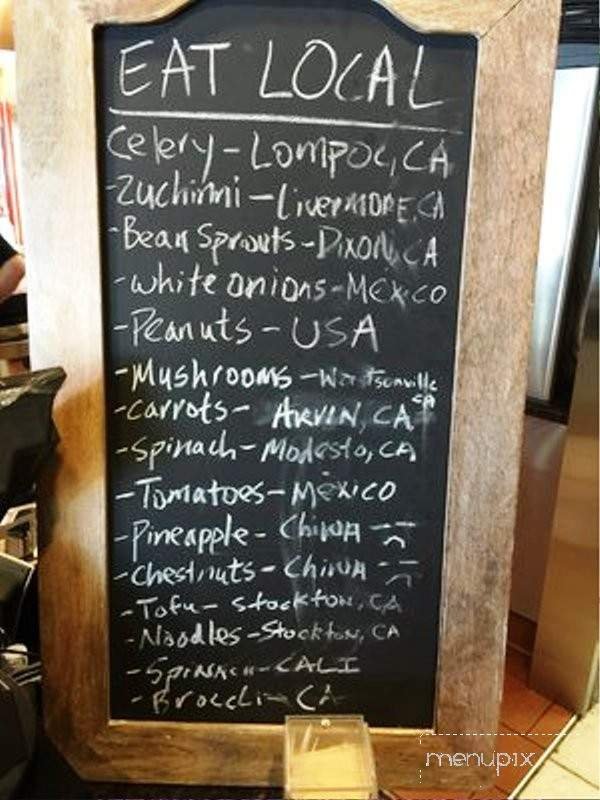 EAT LOCAL
Celery - Lompoc, CA
- Zuchinni - Livermore, CA
- Bean Sprouts - Dixon, CA
- white onions - Mexico
- Peanuts - USA
- Mushrooms - Wartsonville CA
- Carrots - ARVIN, CA
- Spinach - Modesto, CA
- Tomatoes - Mexico
- Pineapple - CHINA
- Chestnuts - CHINA
- Tofu - Stockton, CA
- Noodles - Stockton, CA
- CALI
- Broccli - CA
menupix